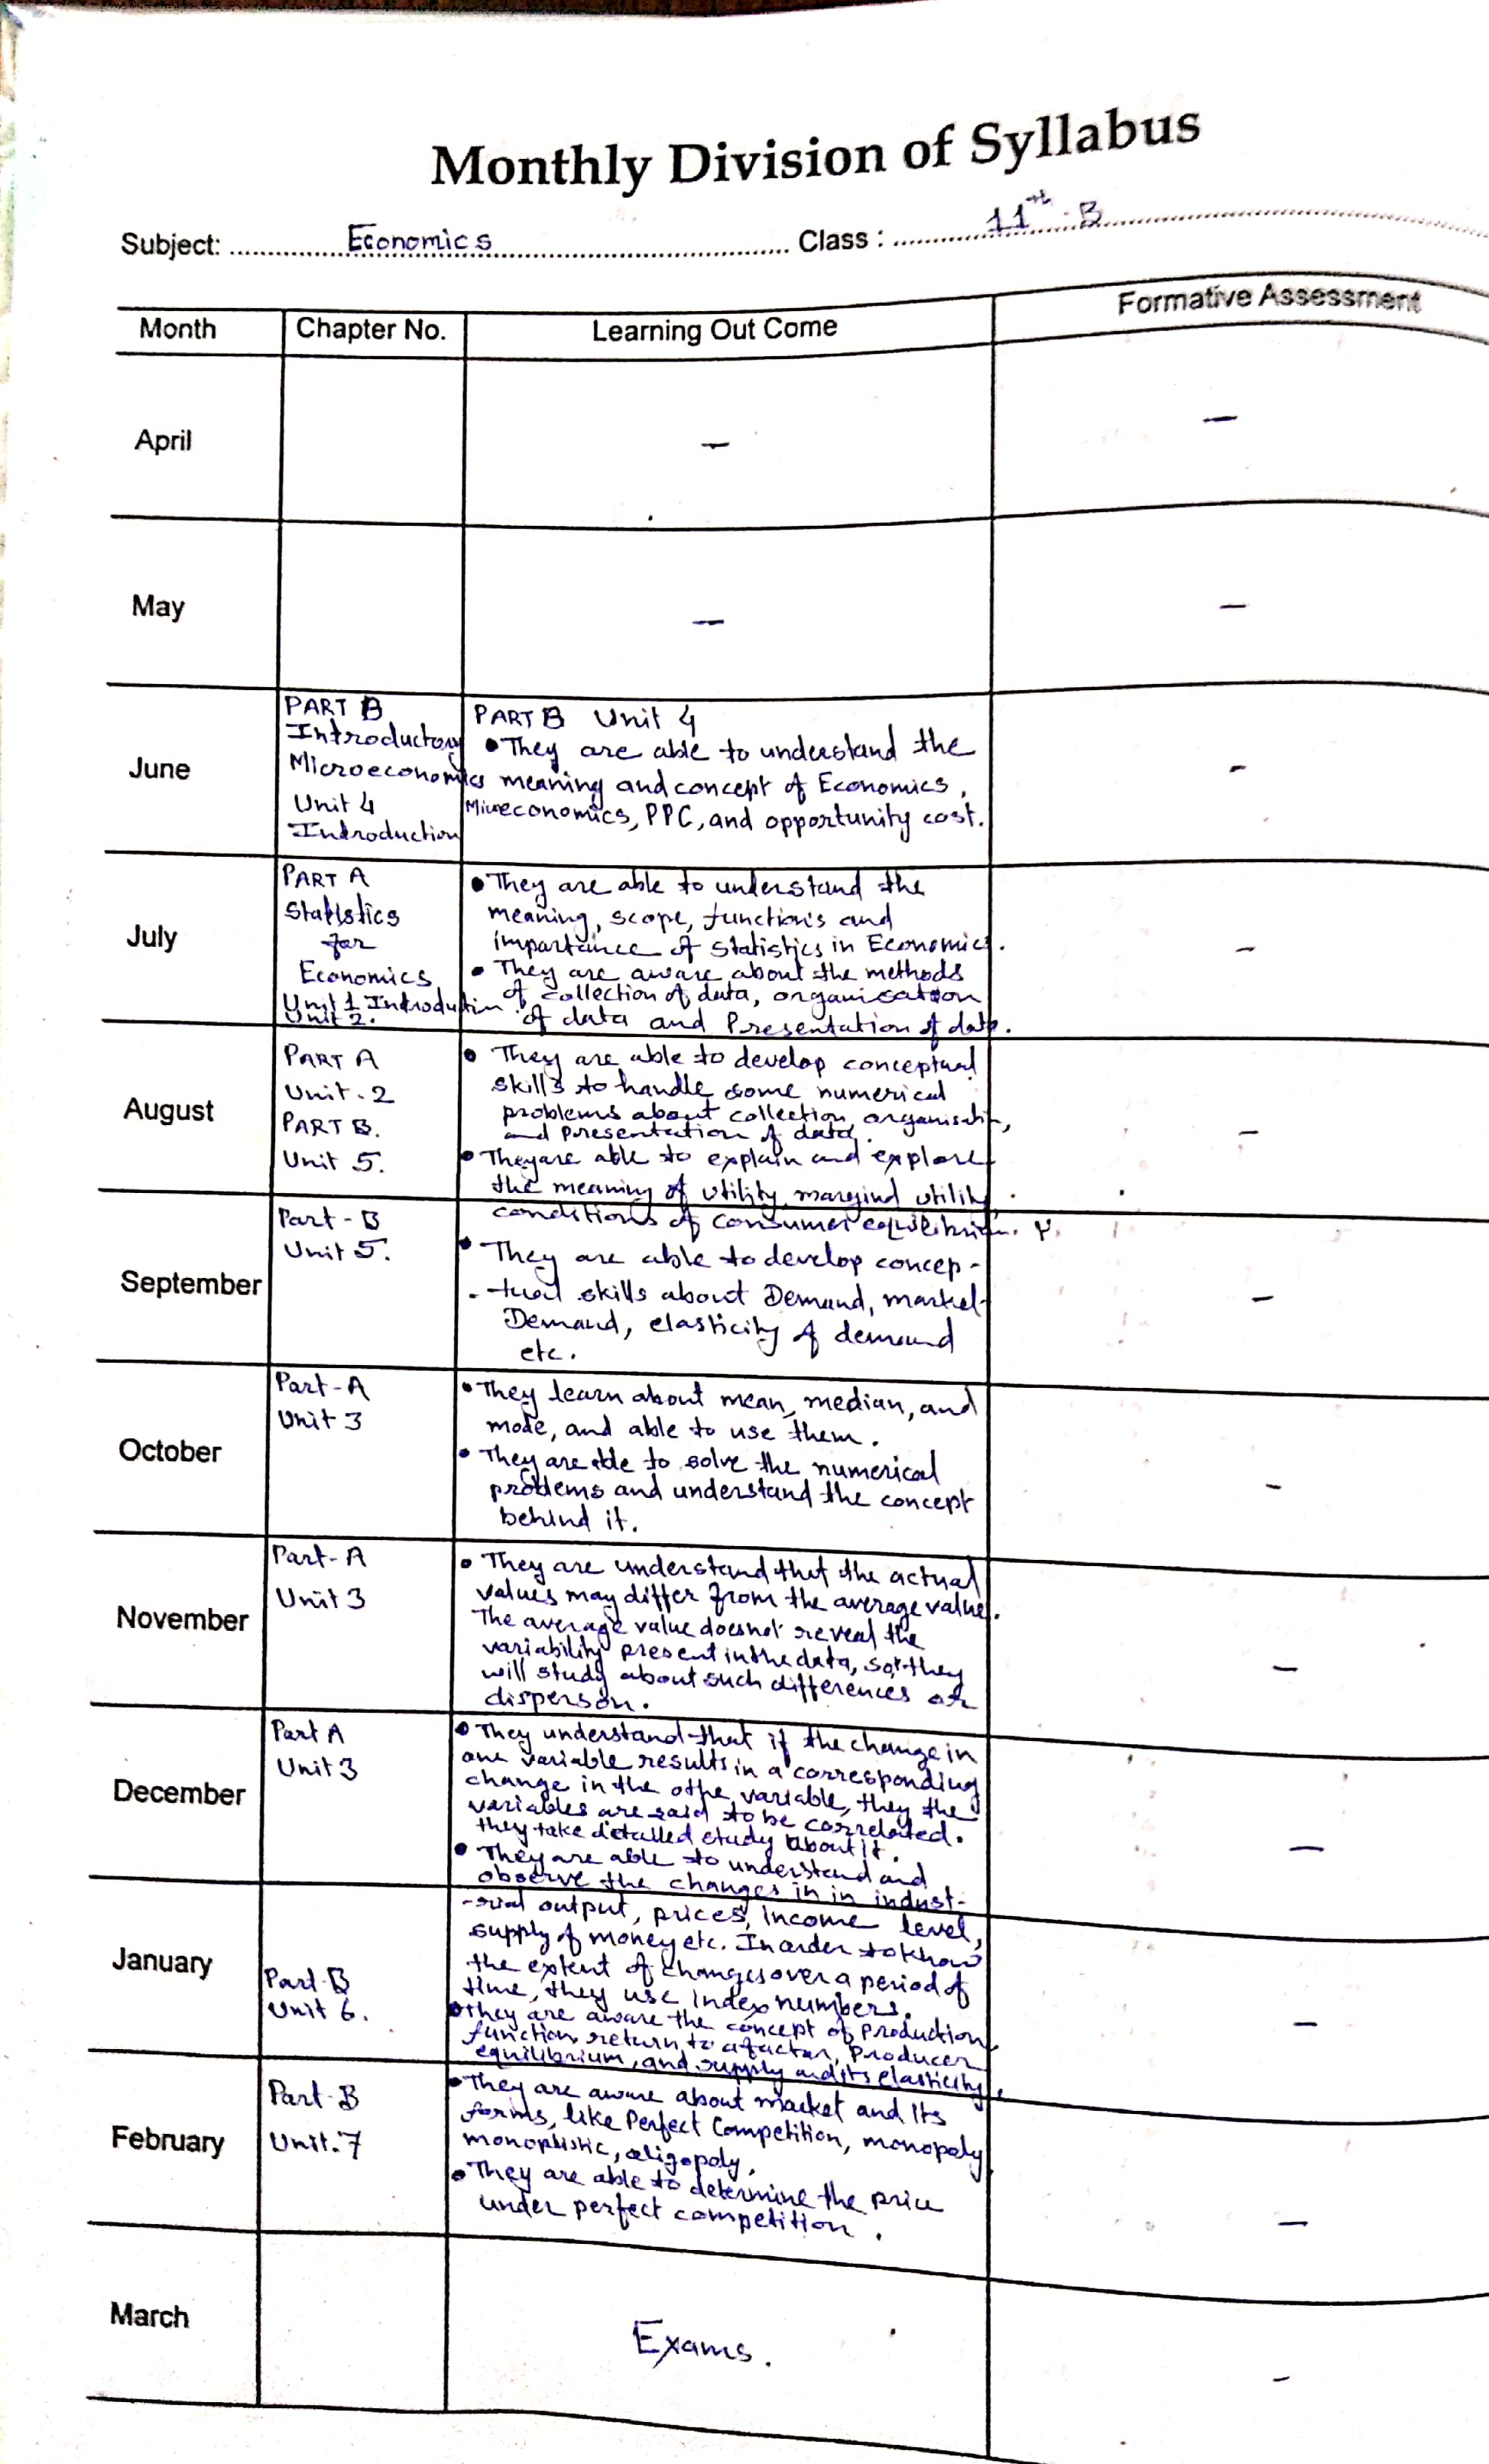 Monthly Division of Syllabus
Subject: Economics Class : 11th B
Month Chapter No. Learning Out Come Formative Assessment
April — —
May — —
June
PART B
Introductory
Microeconomics
Unit 4
Introduction
PART B Unit 4
• They are able to understand the
meaning and concept of Economics,
Miureconomics, PPC, and opportunity cost.
-
July
PART A
Statistics
for
Economics
Unit 1 Introduction
Unit 2.
• They are able to understand the
meaning, scope, functions and
importance of statistics in Economics.
• They are aware about the methods
of collection of data, organisation
of data and Presentation of data.
-
August
PART A
Unit - 2
PART B.
Unit 5.
• They are able to develop conceptual
skills to handle some numerical
problems about collection, organisation,
and presentation of data.
• They are able to explain and explore
the meaning of utility, marginal utility
-
September
Part - B
Unit 5.
conditions of consumer equilibrium.
• They are able to develop concep-
-tual skills about Demand, market
Demand, elasticity of demand
etc.
-
October
Part-A
Unit 3
• They learn about mean, median, and
mode, and able to use them.
• They are able to solve the numerical
problems and understand the concept
behind it.
-
November
Part-A
Unit 3
• They are understand that the actual
values may differ from the average value.
The average value doesnot reveal the
variability present in the data, so they
will study about such differences or
disperson.
—
December
Part A
Unit 3
• They understand that if the change in
one variable results in a corresponding
change in the othe variable, they the
variables are said to be correlated.
they take detailed study about it.
• They are able to understand and
observe the changes in in indust-
—
January
Part-B
Unit 6.
-rial output, prices, income level,
supply of money etc. In order to know
the extent of changes over a period of
time, they use index numbers.
• They are aware the concept of Production
function, return to a factor, Producer
equilibrium, and supply and its elasticity.
—
February
Part-B
Unit.7
• They are aware about market and its
forms, like Perfect Competition, monopoly
monoplistic, oligopoly.
• They are able to determine the price
under perfect competition.
—
March
Exams.
-